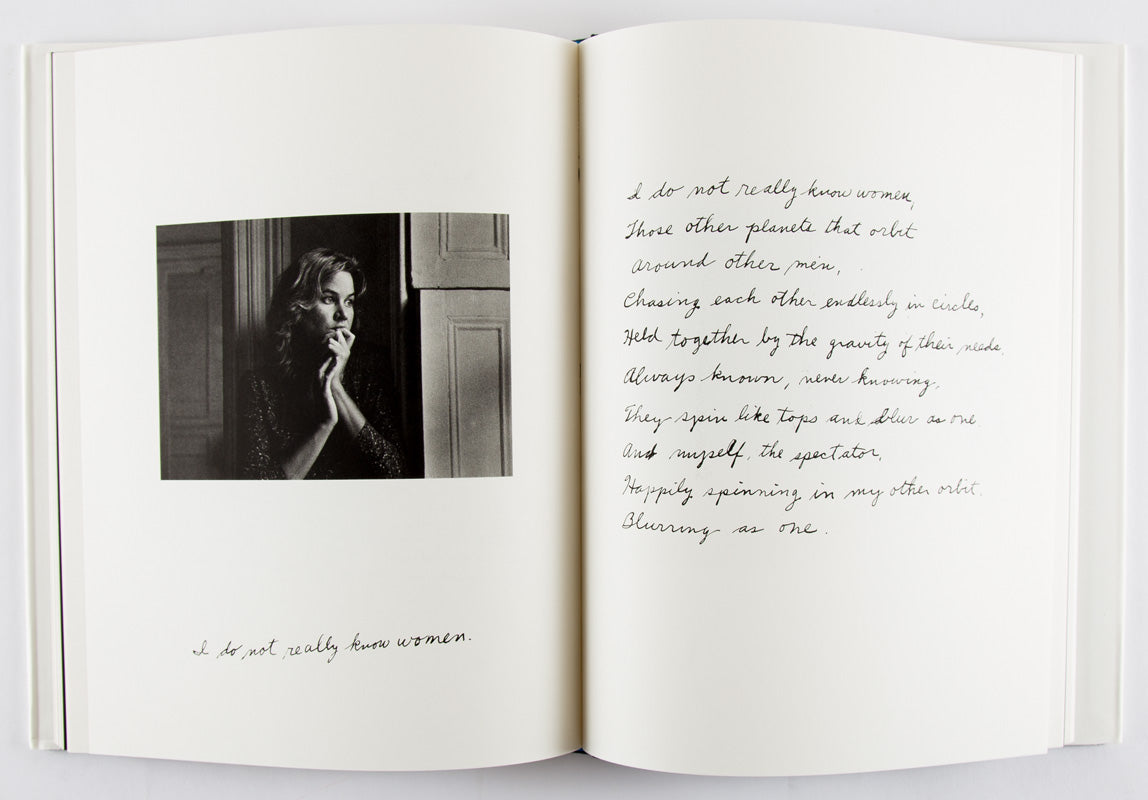 I do not really know women.
I do not really know women,
Those other planets that orbit
around other men,
Chasing each other endlessly in circles,
Held together by the gravity of their needs,
Always known, never knowing,
They spin like tops and blur as one
And myself, the spectator,
Happily spinning in my other orbit,
Blurring as one.